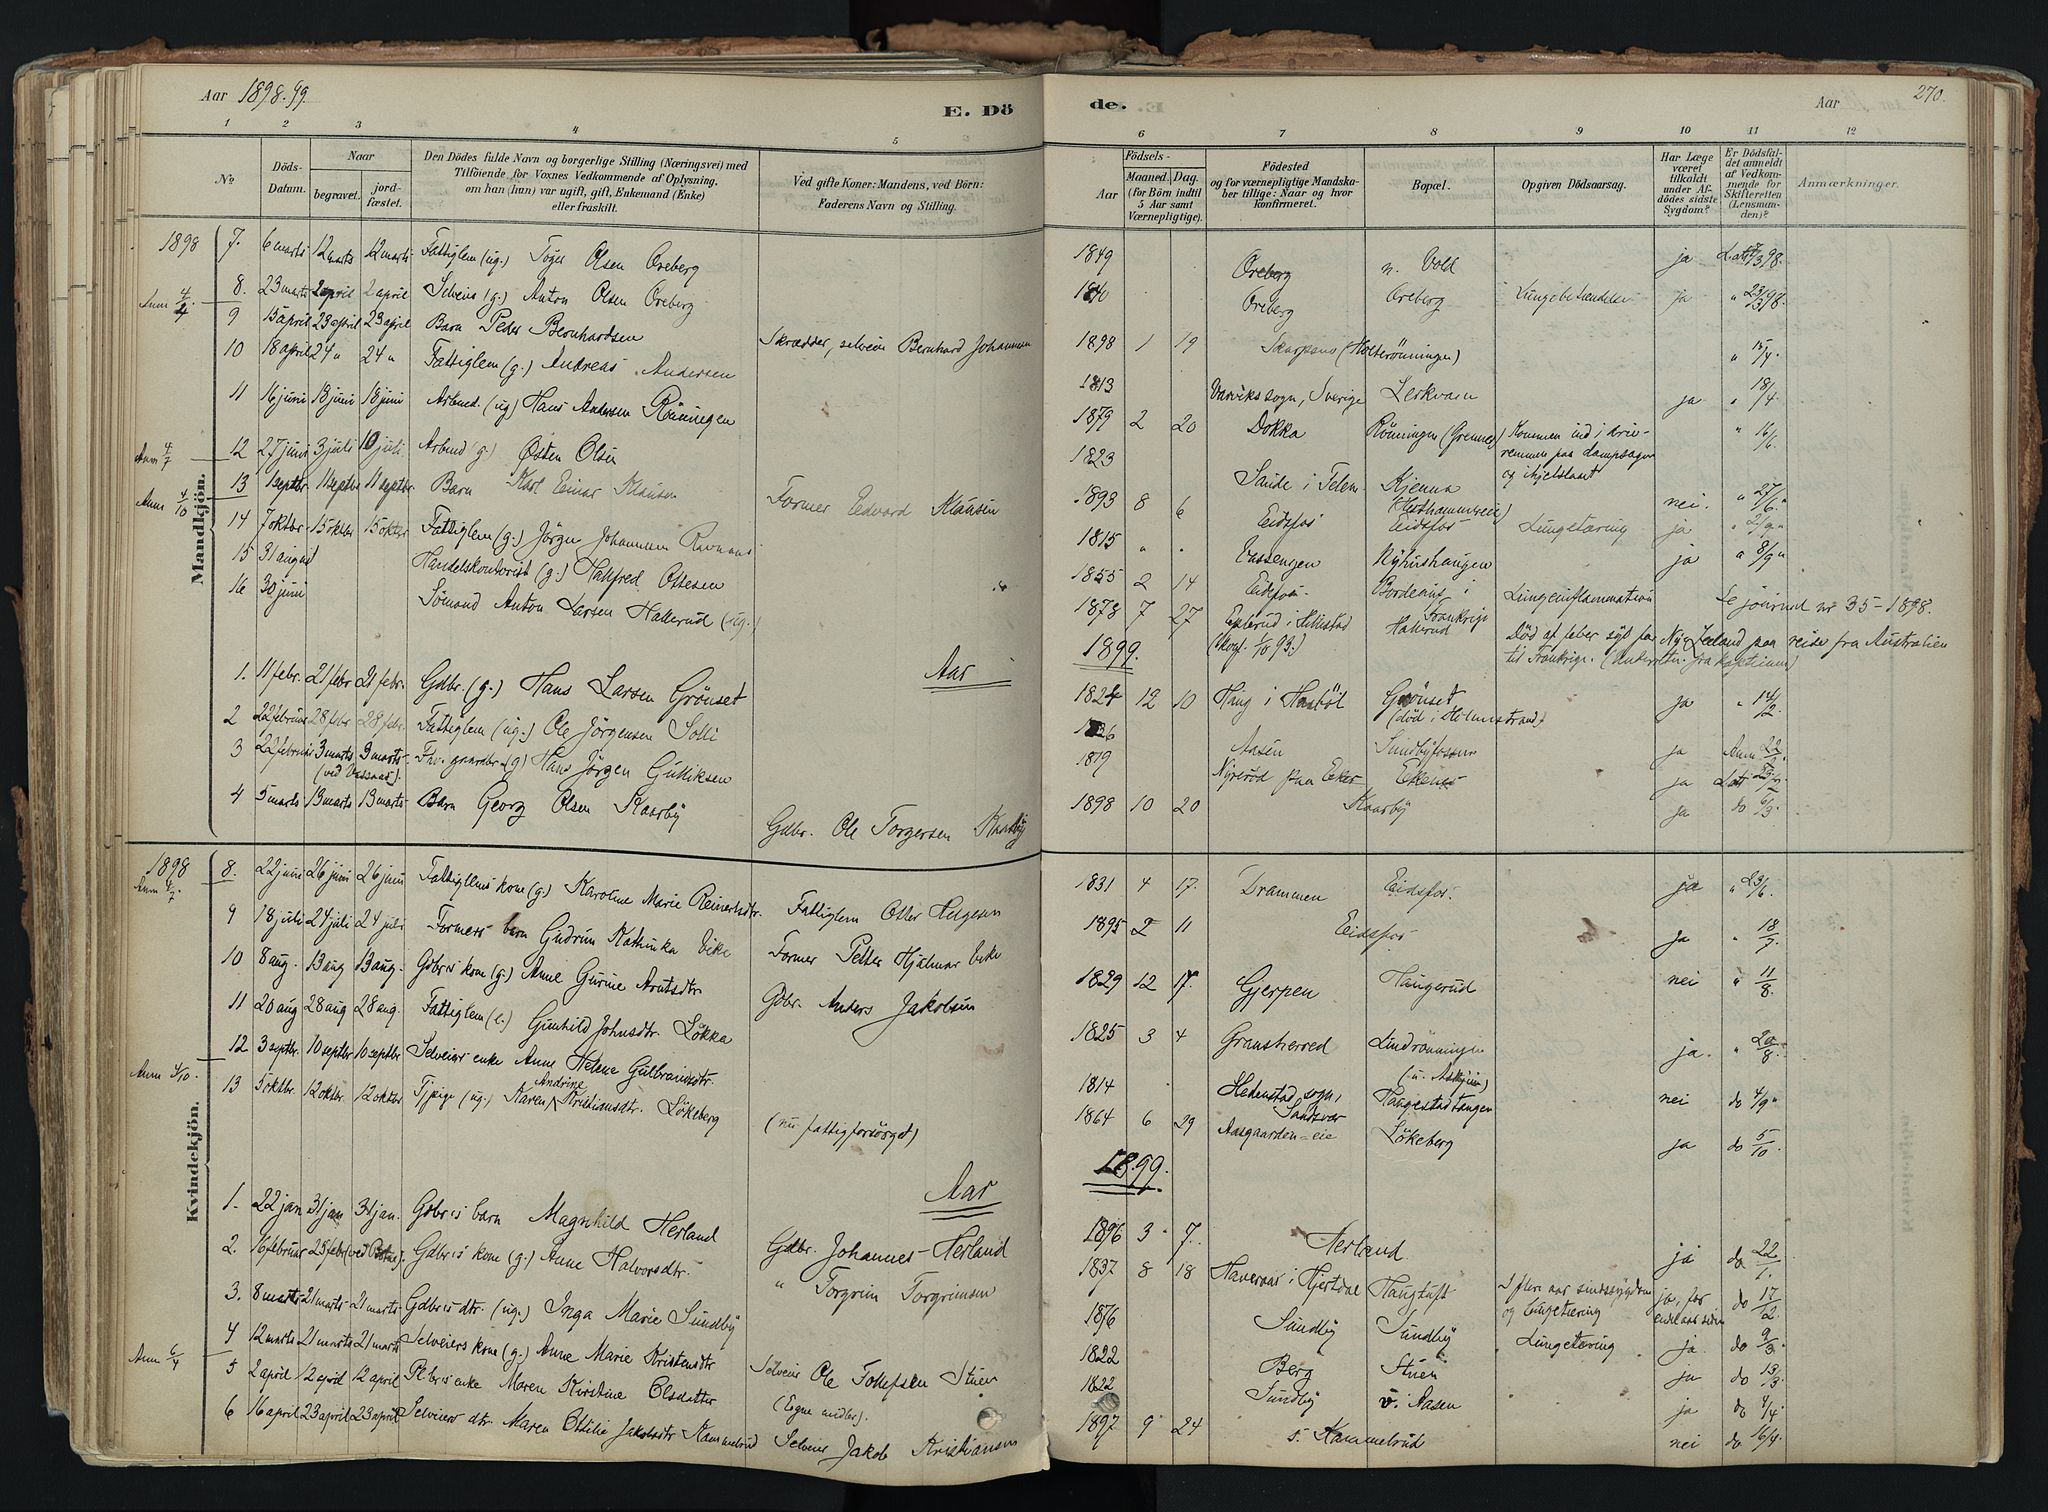 Aar 1898.99.
E. Dö
de.
Aar
270.
1 2 3 4 5
6 7 8 9 10 11 12
No
Döds-Datum.
Naar
begravet.
jord-fæstet.
Den Dödes fulde Navn og borgerlige Stilling (Næringsvei) med
Tilföiende for Voxnes Vedkommende af Oplysning,
om han (hun) var ugift, gift, Enkemand (Enke)
eller fraskilt.
Ved gifte Koner: Mandens, ved Börn:
Faderens Navn og Stilling.
Födsels-
Aar
Maaned. Dag.
(for Börn indtil
5 Aar samt
Værnepligtige).
Födested
og for værnepligtige Mandska-
ber tillige: Naar og hvor
konfirmeret.
Bopæl.
Opgiven Dödsaarsag.
Har Læge
været
tilkaldt
under Af-
dödes sidste
Sygdom?
Er Dödsfal-
det anmeldt
af Vedkom-
mende for
Skifteretten
(Lensman-
den)?
Anmærkninger.
Mandkjön.
1898 7. 6 marts 12 marts 12 marts Fattiglem (ug.) Olsen Oreberg 1849 Oreberg n. Vold ja
8. 23 marts 2 april 2 april Selveier (g.) Anton Olsen Oreberg Oreberg Oreberg Lungebetændelse ja " 23/3 98.
9 13 april 23 april 23 april Barn Peder Bernhardsen Skrædder, selveier Bernhard Johannsen 1898 1 19 (Holterönningen) " 15/4.
10 18 april 24 " 24 " Fattiglem (g.) Andreas Andersen 1813 sogn, Sverige Lerkvarn ja " 18/4
11 16 juni 18 juni 18 juni Arbmd. (ug) Hans Andersen Rönningen 1879 2 20 Dokka Rönningen (Grennes) Kommen ind i driv-
remmen paa dampsagen
og ihjelslaat " 16/6.
Anm 4/7 12 27 juni 3 juli 10 juli Arbmd (g.) Østen Olsen 1823 Saude i Telem. Kjenna nei. " 27/6 "
13 1 septbr 11 septbr 11 septbr Barn Karl Einar Klausen Former Edvard Klausen 1893 8 6 Eidsfos Eidsfos Lungetæring ja " 2/9 "
Anm 4/10 14 7 oktbr 15 oktbr 15 oktbr Fattiglem (g.) Jörgen Johannsen 1815 " " Vassengen Nyhushaugen ja
15 31 august Handelskontorist (g.) Halfred Ottesen 1855 2 14 Eidsfos Bordeaux i
Frankrige Lungeinflammation Se journal nr 35-1898.
16 30 juni Sömand Anton Larsen Hallerud (ug.) 1878 7 27 Eplerud i Hillestad Hallerud Död af feber syd for Ny Zeeland paa reise fra Australien
til Frankrige. (Underretn. fra kapteinen)
Aar 1899.
1. 11 febr. 21 febr 21 febr. Gdbr. (g.) Hans Larsen Grönset 1824 12 10 Haug i Grönset
(död i Holmestrand) ja " 14/2.
2 22 februar 28 febr 28 febr. Fattiglem (ug.) Ole Jörgensen Solli Aasen Sundbyfossen ja
3 22 februar 3 marts 3 marts
(ved Vassaas). Fhv. gaardbr. (g) Hans Jörgen Gulliksen 1819 paa Eker Ekenes ja
4 5 marts 13 marts 13 marts Barn Georg Olsen Kaarby Gdbr. Ole Torgersen Kaarby 1898 10 20 Kaarby ja do 6/3.
Kvindekjön.
1898
Anm 4/7. 8. 22 juni 26 juni 26 juni Fattiglems kone (g.) Karoline Marie Reinertsdtr. Fattiglem Otter Helgesen 1831 4 17. Drammen Eidsfos. ja " 23/6.
9 18 juli 24 juli 24 juli Formers barn Gudrun Kathinka Eike Former Petter Hjalmar Eike 1895 2 11 Eidsfos ja " 18/7.
10 8 aug. 13 aug 13 aug. Gdbr's kone (g.) Anne Gurine Arntsdtr Gdbr. Anders Jakobsen 1829 12 17. Gjerpen Haugerud nei " 11/8.
11 20 aug 28 aug 28 aug. Fattiglem (e.) Gunhild Johnsdtr. Lökka 1825 3 4 Gransherred Lindrönningen ja. " 20/8.
12 3 septbr. 10 septbr 10 septbr Selveiers enke Anne Helene Gulbrandsdtr. 1814 Hedenstad sogn,
Sandsvær Haugestadtangen nei do 4/9 "
Anm 4/10. 13 5 oktbr. 12 oktbr. 12 oktbr Tjpige (ug.) Karen Andrine Kristiansdtr. Lökeberg (nu fattigforsörget) 1864 6 29 Aasgaarden=eie Lökeberg ja do 5/10
Aar 1899.
1. 22 jan 31 jan 31 jan. Gdbr's barn Magnhild Herland Gdbr. Johannes Herland 1896 3 7. Herland. ja do 22/1.
2. 16 februar 25 febr Gdbr's kone (g.) Anne Halvorsdtr. " Torgrim Torgrimsen 1837 8 18 i Hjertdal Haugtuft I flere aar sindssygdom
og lungetæring ja, for
endel aar siden do 17/2.
3. 8 marts 21 marts 21 marts Gdbr's dtr. (ug.) Inga Marie Sundby 1876 Sundby Sundby Lungetæring ja do 9/3
4 12 marts 21 marts 21 marts Selveiers kone (g.) Anne Marie Kristensdtr Selveier Ole Tollefsen Stuen 1822 Berg Stuen ja do 13/3
Anm 6/4 5 2 april 12 april 12 april enke Maren Kirstine Olsdatter (Egne midler). 1822 Sundby v. Aasen ja do 4/4
6 16 april 23 april 23 april Selveiers dtr. Maren Otilie Jakobsdtr Kammelrud Selveier Jakob Kristiansen 1897 9 24 s. Kammelrud nei do 16/4.